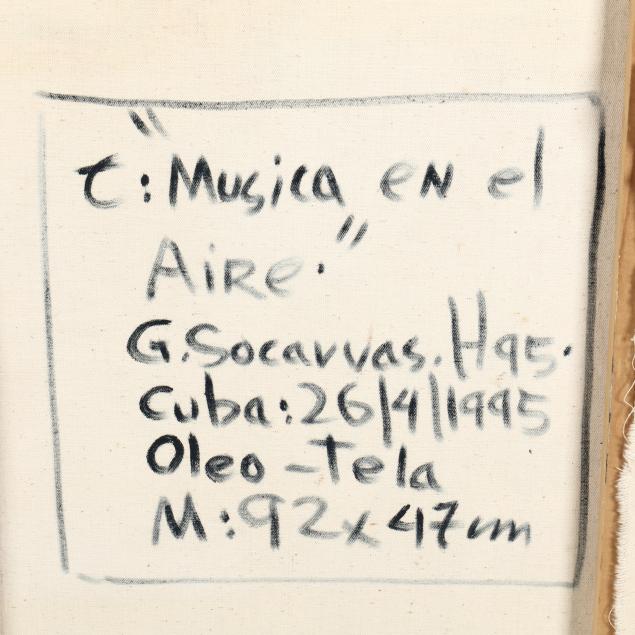 t: "Musica en el
Aire."
G. Socarras. H 95.
Cuba: 26/4/1995
Oleo - Tela
M: 92 x 47 cm